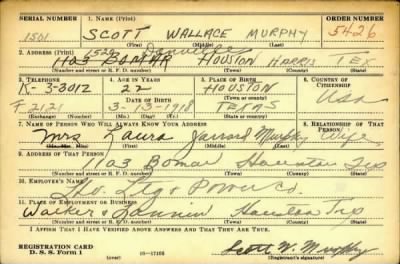 SERIAL NUMBER 1. NAME (Print) ORDER NUMBER
1501 SCOTT WALLACE MURPHY 5426
(First) (Middle) (Last)
2. ADDRESS (Print)
1103 BOMAR HOUSTON HARRIS TEX
(Number and street or R. F. D. number) (Town) (County) (State)
3. TELEPHONE 4. AGE IN YEARS 5. PLACE OF BIRTH 6. COUNTRY OF CITIZENSHIP
K-3-3012 22 HOUSTON
DATE OF BIRTH (Town or county)
F 2121 3-13-1918 TEXAS USA
(Exchange) (Number) (Mo.) (Day) (Yr.) (State or country)
7. NAME OF PERSON WHO WILL ALWAYS KNOW YOUR ADDRESS 8. RELATIONSHIP OF THAT PERSON
Mrs Laura Jarrard Murphy Wife
(Mr., Mrs., Miss) (First) (Middle) (Last)
9. ADDRESS OF THAT PERSON
1103 Bomar Houston Tex
(Number and street or R. F. D. number) (Town) (County) (State)
10. EMPLOYER'S NAME
Ltg & Power Co.
11. PLACE OF EMPLOYMENT OR BUSINESS
Walker & Fannin Houston Tex
(Number and street or R. F. D. number) (Town) (County) (State)
I AFFIRM THAT I HAVE VERIFIED ABOVE ANSWERS AND THAT THEY ARE TRUE.
REGISTRATION CARD
D. S. S. Form 1 (over) 16—17105 Scott W. Murphy
(Registrant's signature)